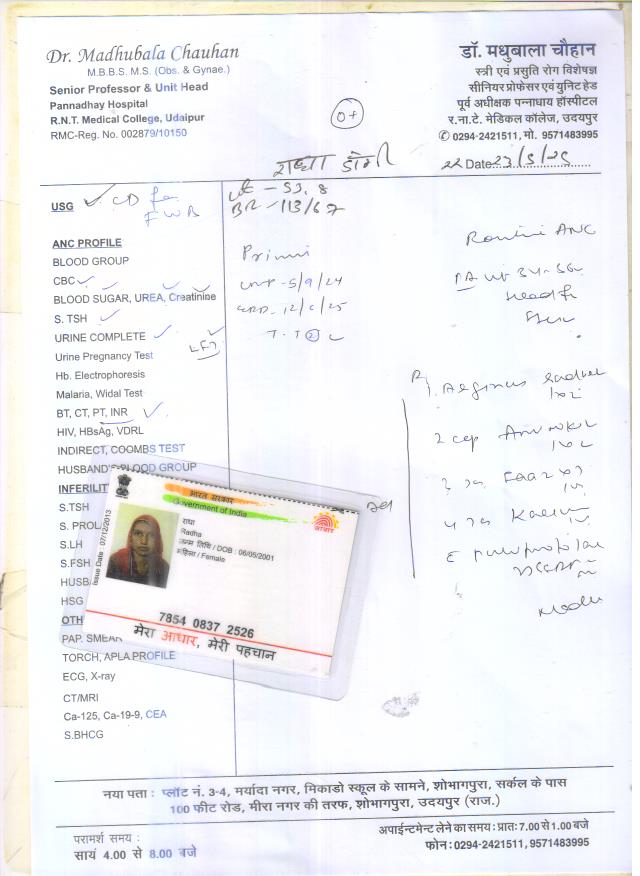 Dr. Madhubala Chauhan
M.B.B.S. M.S. (Obs. & Gynae.)
Senior Professor & Unit Head
Pannadhay Hospital
R.N.T. Medical College, Udaipur
RMC-Reg. No. 002879/10150
डॉ. मधुबाला चौहान
स्त्री एवं प्रसुति रोग विशेषज्ञ
सीनियर प्रोफेसर एवं युनिट हेड
पूर्व अधीक्षक पन्नाधाय हॉस्पीटल
र.ना.टे. मेडिकल कॉलेज, उदयपुर
✆ 0294-2421511, मो. 9571483995
O+
राधा
Date 23/5/25
USG CD for
FWB
Wt - 53.8
BP - 113/67
ANC PROFILE
BLOOD GROUP
CBC
BLOOD SUGAR, UREA, Creatinine
S. TSH
URINE COMPLETE
LFT
Urine Pregnancy Test
Hb. Electrophoresis
Malaria, Widal Test
BT, CT, PT, INR
HIV, HBsAg, VDRL
INDIRECT, COOMBS TEST
HUSBAND'S BLOOD GROUP
INFERILIT
S.TSH
S. PROL
S.LH
S.FSH
HUSB
HSG
OTH
PAP. SMEAR
TORCH, APLA PROFILE
ECG, X-ray
CT/MRI
Ca-125, Ca-19-9, CEA
S.BHCG
Primi
LMP - 5/9/24
EDD - 12/6/25
T.T ②
Routine ANC
PA 34-36
1.
2 cap
3
4
भारत सरकार
Government of India
आधार
Issue Date : 07/12/2013
राधा
Radha
जन्म तिथि / DOB : 06/05/2001
महिला / Female
7854 0837 2526
मेरा आधार, मेरी पहचान
नया पता : प्लॉट नं. 3-4, मर्यादा नगर, मिकाडो स्कूल के सामने, शोभागपुरा, सर्कल के पास
100 फीट रोड, मीरा नगर की तरफ, शोभागपुरा, उदयपुर (राज.)
परामर्श समय :
सायं 4.00 से 8.00 बजे
अपाईन्टमेन्ट लेने का समय : प्रातः 7.00 से 1.00 बजे
फोन : 0294-2421511, 9571483995